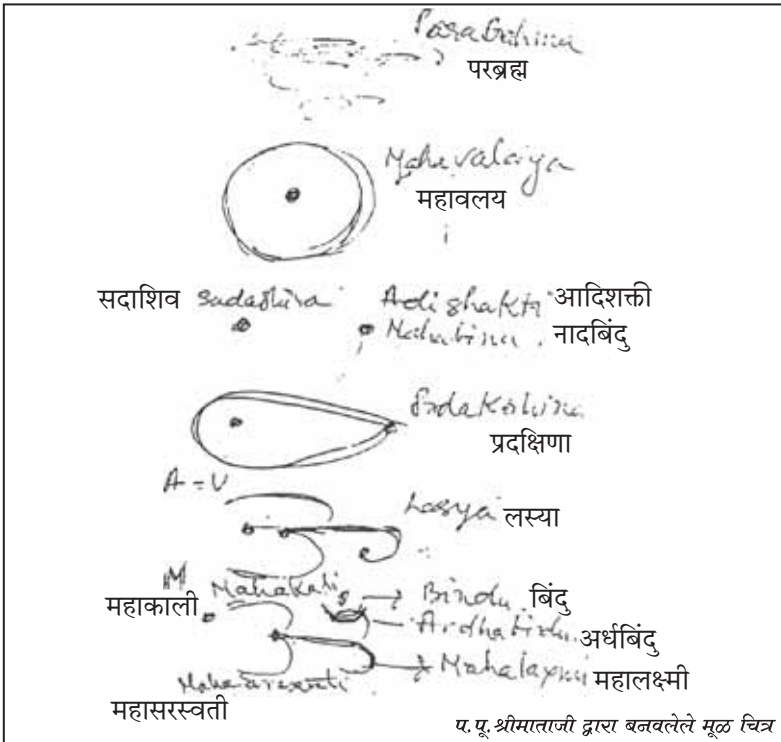 ParaBrhma
परब्रह्म
Mahavalaiya
महावलय
सदाशिव Sadashiva Adishakti आदिशक्ती
नादबिंदु
Pradakshina
प्रदक्षिणा
A = U
Lasya लस्या
M Mahakali Bindu बिंदु
महाकाली
Ardhabindu अर्धबिंदु
Mahalaxmi महालक्ष्मी
Mahasaraswati
महासरस्वती
प.पू.श्रीमाताजी द्वारा बनवलेले मूळ चित्र